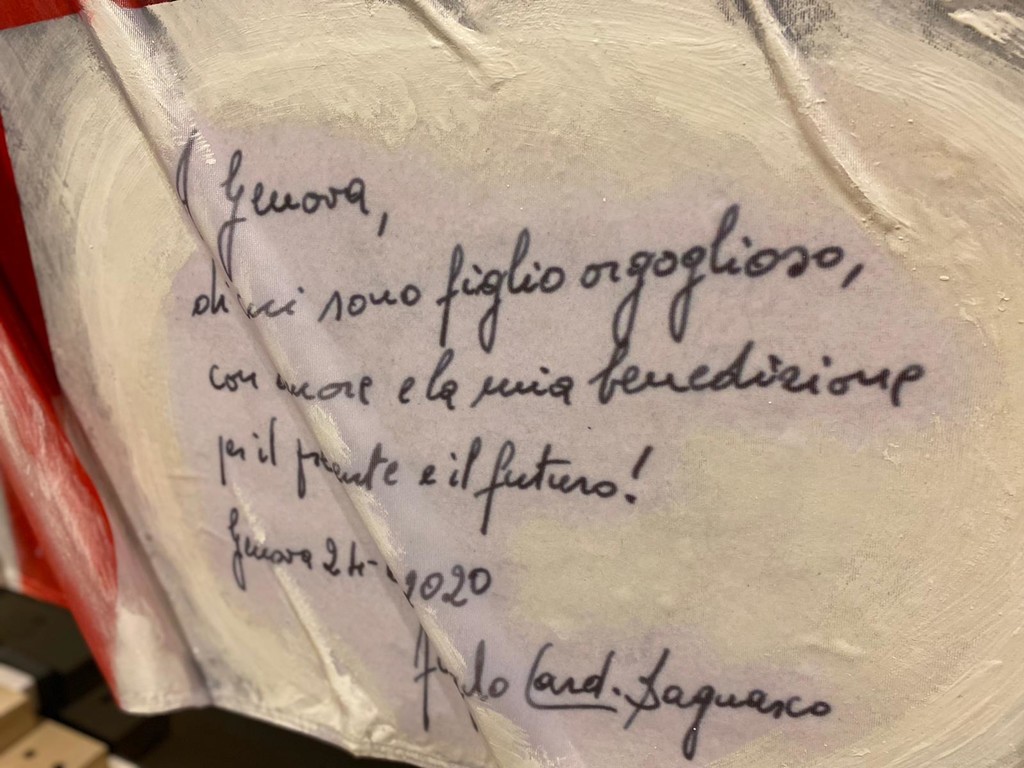 Genova,
di cui sono figlio orgoglioso,
con amore e la mia benedizione
per il presente e il futuro!
Genova 24- 2020
Angelo Card. Bagnasco